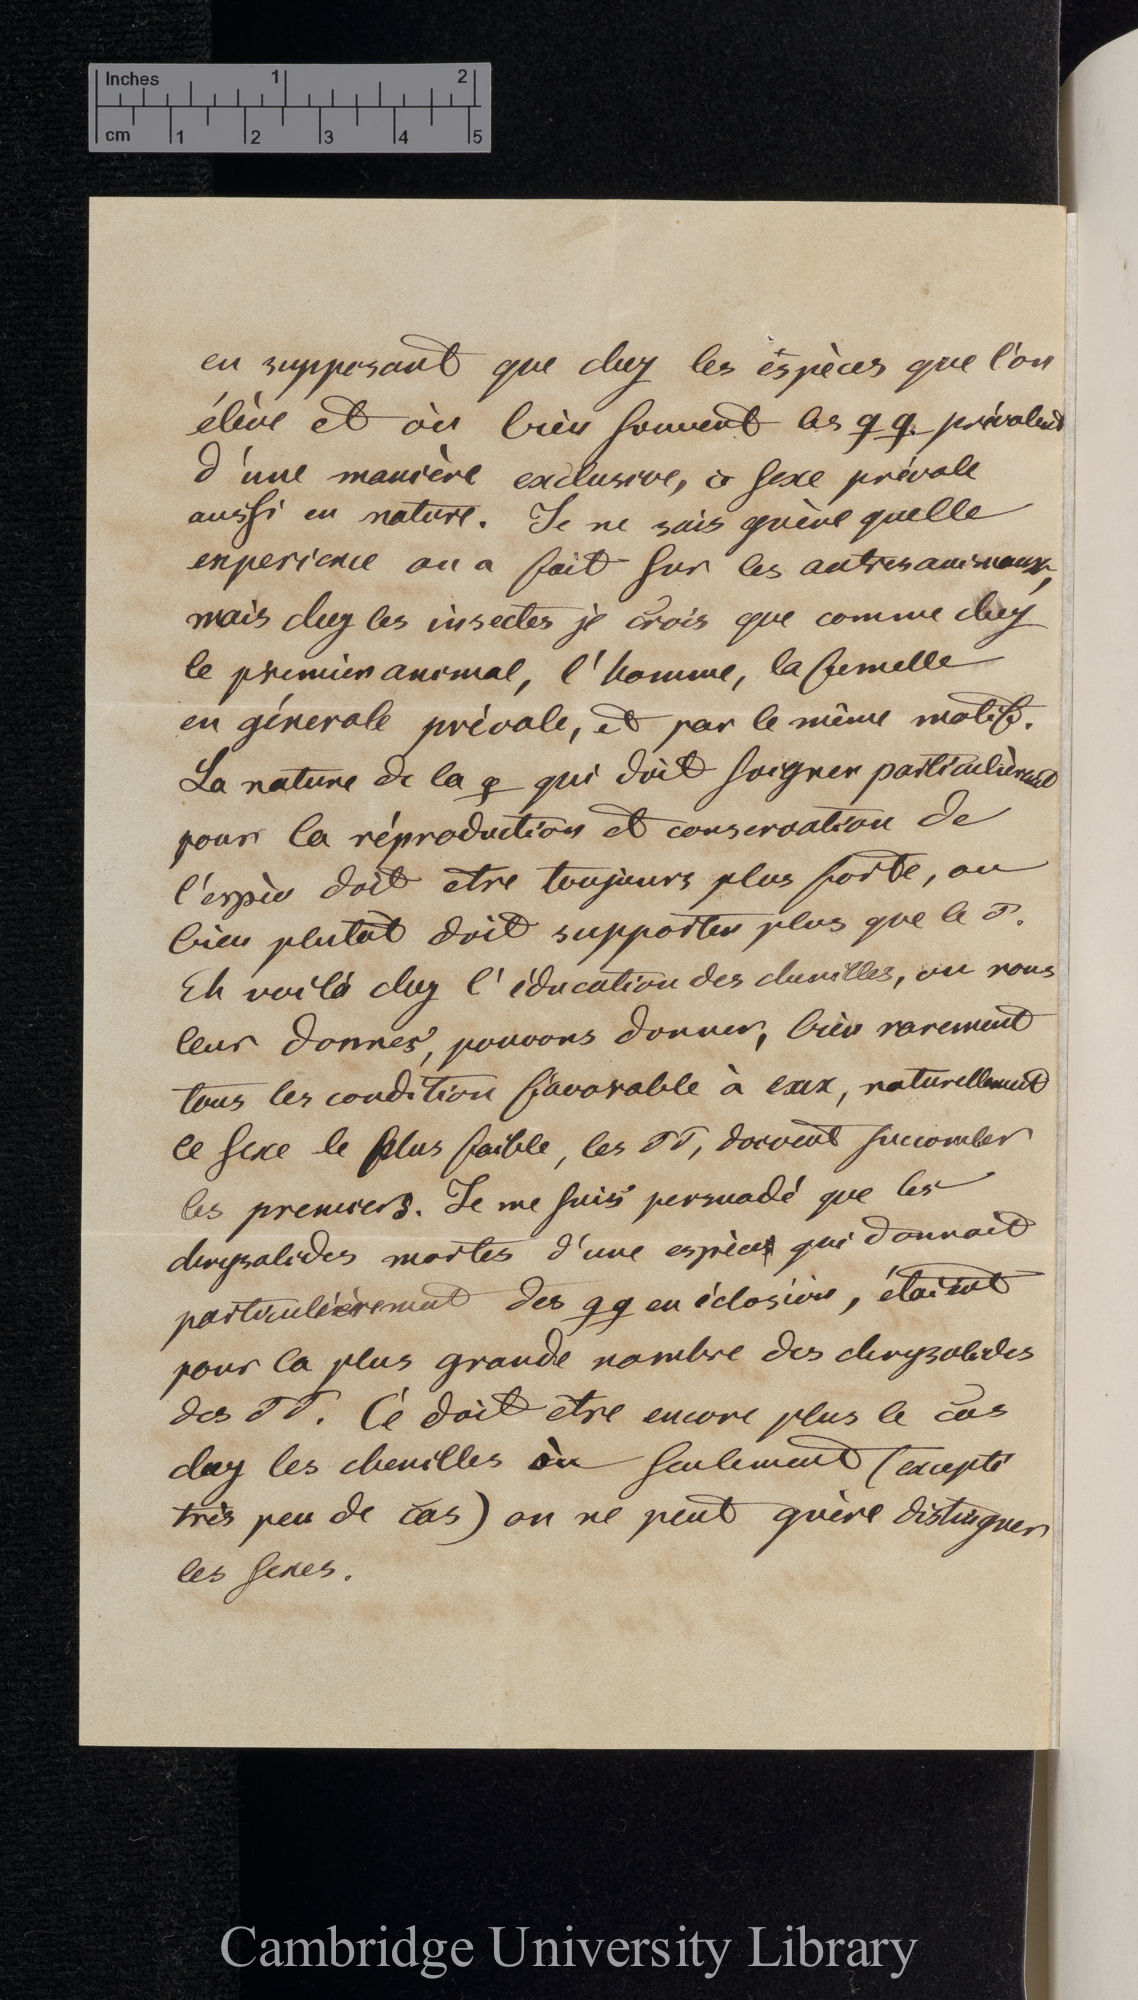 Inches 1 2
cm 1 2 3 4 5
en supposant que chez les éspèces que l'on
élève et où bien souvent les ♀♀ prévalent
d'une manière exclusive, ce sexe prévale
aussi en nature. Je ne sais guère quelle
experience on a fait sur les autres animaux,
mais chez les insectes je crois que comme chez
le premier animal, l'homme, la femelle
en génerale prévale, et par le même motif.
La nature de la ♀ qui doit soigner particulièrement
pour la réproduction et conservation de
l'espèce doit etre toujours plus forte, ou
bien plutôt doit supporter plus que le ♂.
Eh voilà chez l'éducation des chenilles, où nous
leur donnes, pouvons donner, bien rarement
tous les condition favorable à eux, naturellement
le sexe le plus faible, les ♂♂, doivent succomber
les premiers. Je me suis persuadé que les
chrysalides mortes d'une espèce qui donnait
particulièrement des ♀♀ en éclosion, étaient
pour la plus grande nombre des chrysalides
des ♂♂. Cé doit etre encore plus le cas
chez les chenilles où seulement (excepté
très peu de cas) on ne peut guère distinguer
les sexes.
Cambridge University Library